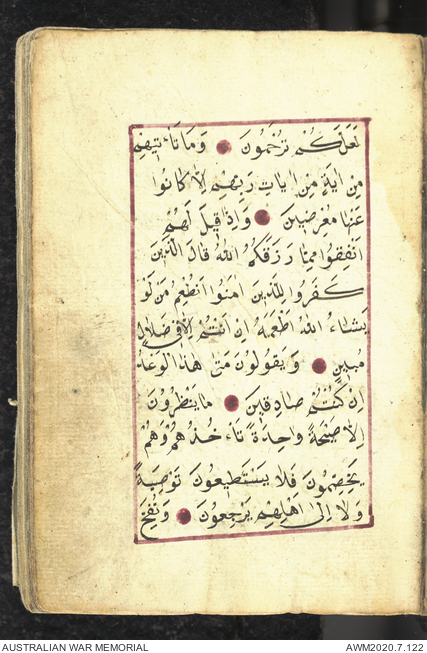 لَعَلَّكُمْ تُرْحَمُونَ وَمَا تَاءْتِيهِمْ
مِنْ اٰيَةٍ مِنْ اٰيَاتِ رَبِّهِمْ اِلَّا كَانُوا
عَنْهَا مُعْرِضِينَ وَاِذَا قِيلَ لَهُمْ
اَنْفِقُوا مِمَّا رَزَقَكُمُ اللهُ قَالَ الَّذِينَ
كَفَرُوا لِلَّذِينَ اٰمَنُوا اَنُطْعِمُ مَنْ لَوْ
يَشَاءُ اللهُ اَطْعَمَهُ اِنْ اَنْتُمْ اِلَّا فِى ضَلَالٍ
مُبِينٍ وَيَقُولُونَ مَتٰى هٰذَا الْوَعْدُ
اِنْ كُنْتُمْ صَادِقِينَ مَا يَنْظُرُونَ
اِلَّا صَيْحَةً وَاحِدَةً تَاءْخُذُهُمْ وَهُمْ
يَخِصِّمُونَ فَلَا يَسْتَطِيعُونَ تَوْصِيَةً
وَلَا اِلٰى اَهْلِهِمْ يَرْجِعُونَ وَنُفِخَ
AUSTRALIAN WAR MEMORIAL
AWM2020.7.122